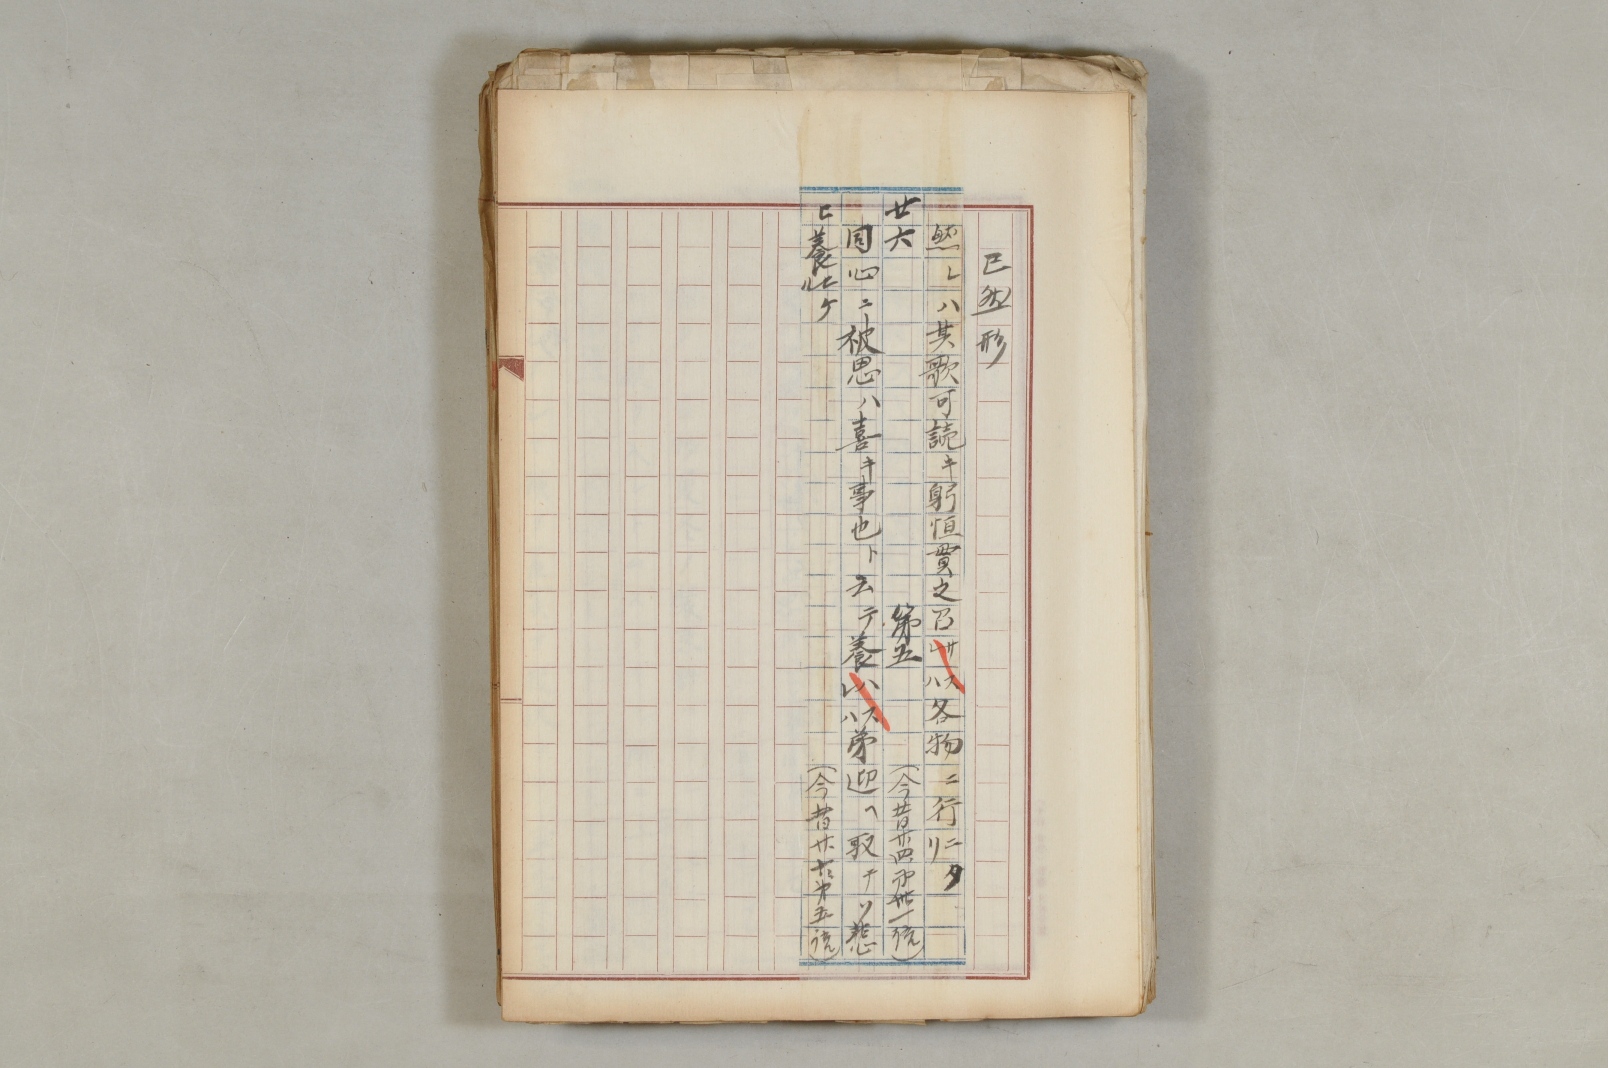 已然形
然レハ其歌可読キ躬恒貫之召サレハス各物ニ行ニタリ
廿六 第五 (今昔廿四第卅一読)
同心ニ被思ハ喜キ事也ト云テ養ハスレハ弟迎ヘ取テソ悲
ヒ養ヒケル (今昔廿六第五読)